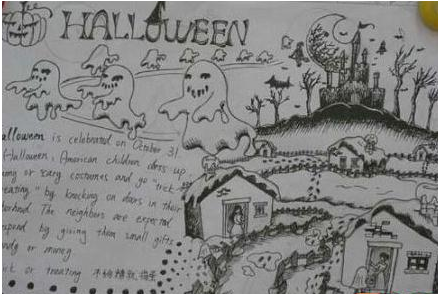 HALLOWEEN
alloween is celebrated on October 31
Halloween, American children dress up
or costumes and go "trick
eating" by knocking on doors in their
The neighbors are expected
spond by giving them small gifts
ndy or money
or treating 不给糖就捣蛋